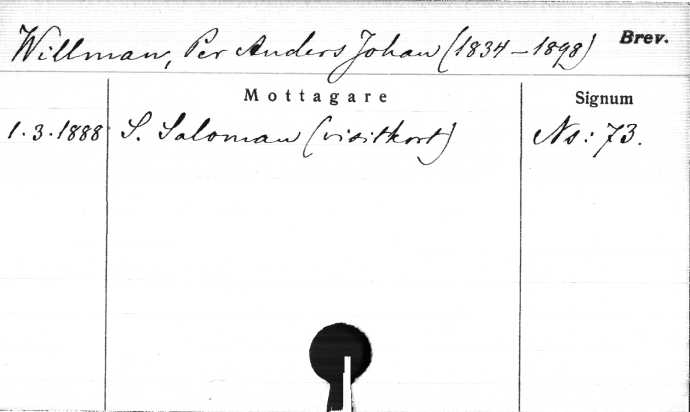 Willman, Per Anders Johan (1834-1898) Brev.
Mottagare Signum
1.3.1888 S. Saloman (visitkort) Ns: 73.